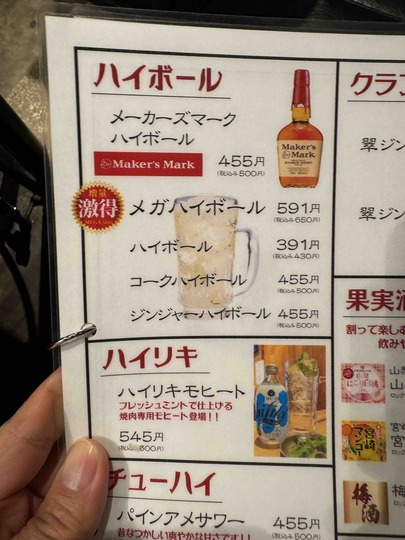 ハイボール
メーカーズマーク
ハイボール
Maker's Mark
455円
(税込み500円)
Maker's
Mark
増量
激得
メガハイボール 591円
(税込み650円)
ハイボール 391円
(税込み430円)
コークハイボール 455円
(税込み500円)
ジンジャーハイボール 455円
(税込み500円)
ハイリキ
ハイリキモヒート
フレッシュミントで仕上げる
焼肉専用モヒート登場!!
545円
(税込み600円)
チューハイ
パインアメサワー 455円
(税込み500円)
昔なつかしい爽やかな甘さです!!
クラフ
翠ジン
翠ジン
果実酒
割って楽しむ
飲みや
山
山
宮崎
マンゴー
宮
宮
梅酒
梅
ロック